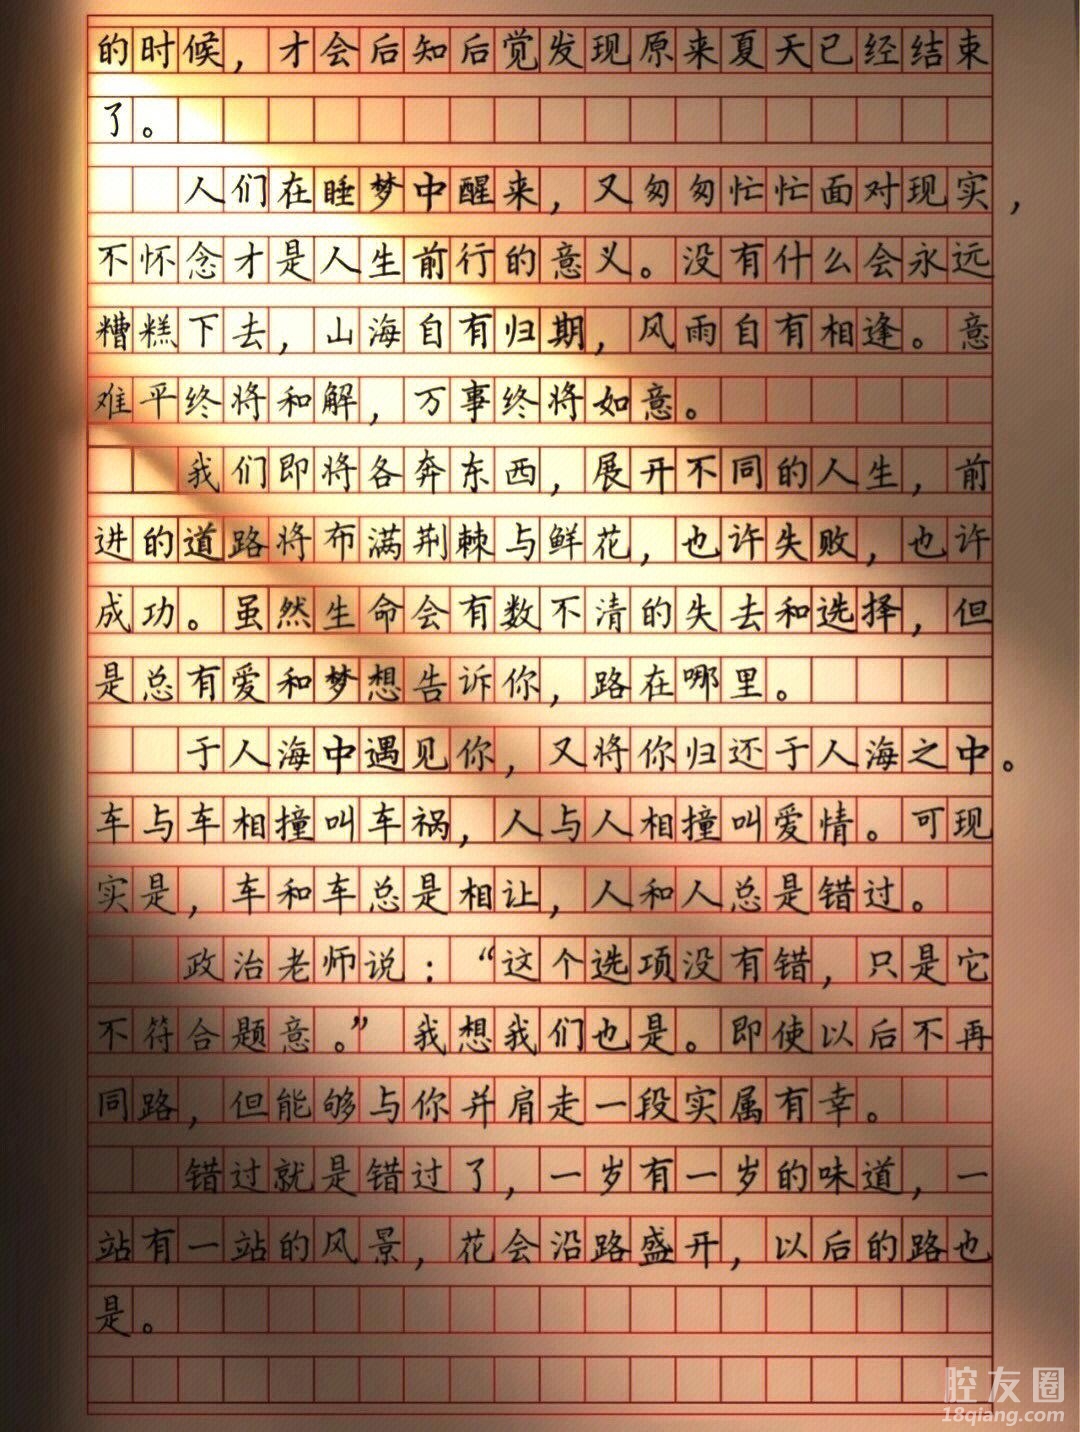 的时候，才会后知后觉发现原来夏天已经结束
了。
人们在睡梦中醒来，又匆匆忙忙面对现实，
不怀念才是人生前行的意义。没有什么会永远
糟糕下去，山海自有归期，风雨自有相逢。意
难平终将和解，万事终将如意。
我们即将各奔东西，展开不同的人生，前
进的道路将布满荆棘与鲜花，也许失败，也许
成功。虽然生命会有数不清的失去和选择，但
是总有爱和梦想告诉你，路在哪里。
于人海中遇见你，又将你归还于人海之中。
车与车相撞叫车祸，人与人相撞叫爱情。可现
实是，车和车总是相让，人和人总是错过。
政治老师说：“这个选项没有错，只是它
不符合题意。”我想我们也是。即使以后不再
同路，但能够与你并肩走一段实属有幸。
错过就是错过了，一岁有一岁的味道，一
站有一站的风景，花会沿路盛开，以后的路也
是。
腔友圈
18qiang.com